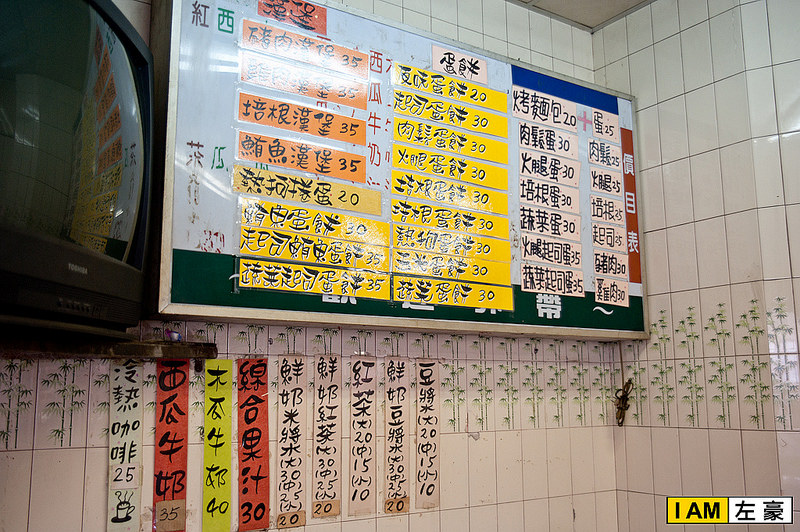 紅
西
漢堡
豬肉漢堡 35
雞肉漢堡 35
培根漢堡 35
鮪魚漢堡 35
熱狗捲蛋 20
鮪魚蛋餅 30
起司鮪魚蛋餅 35
蔬菜起司蛋餅 35
西
瓜
牛
奶
茶
蛋餅
原味蛋餅 20
起司蛋餅 30
肉鬆蛋餅 30
火腿蛋餅 30
培根蛋餅 30
培根蛋餅 30
熱狗蛋餅 30
玉米蛋餅 30
蔬菜蛋餅 30
烤麵包 20
肉鬆蛋 30
火腿蛋 30
培根蛋 30
蔬菜蛋 30
火腿起司蛋 35
蔬菜起司蛋 35
+
蛋 25
肉鬆 25
火腿 25
培根 25
起司 25
豬肉 30
雞肉 30
價目表
帶
TOSHIBA
冷熱咖啡 25
西瓜牛奶 35
木瓜牛奶 40
綜合果汁 30
鮮奶米漿(大)30(中)25(小)20
鮮奶紅茶(大)30(中)25(小)20
紅茶(大)20(中)15(小)10
鮮奶豆漿(大)30(中)25(小)20
豆漿米(大)20(中)15(小)10
I AM 左豪